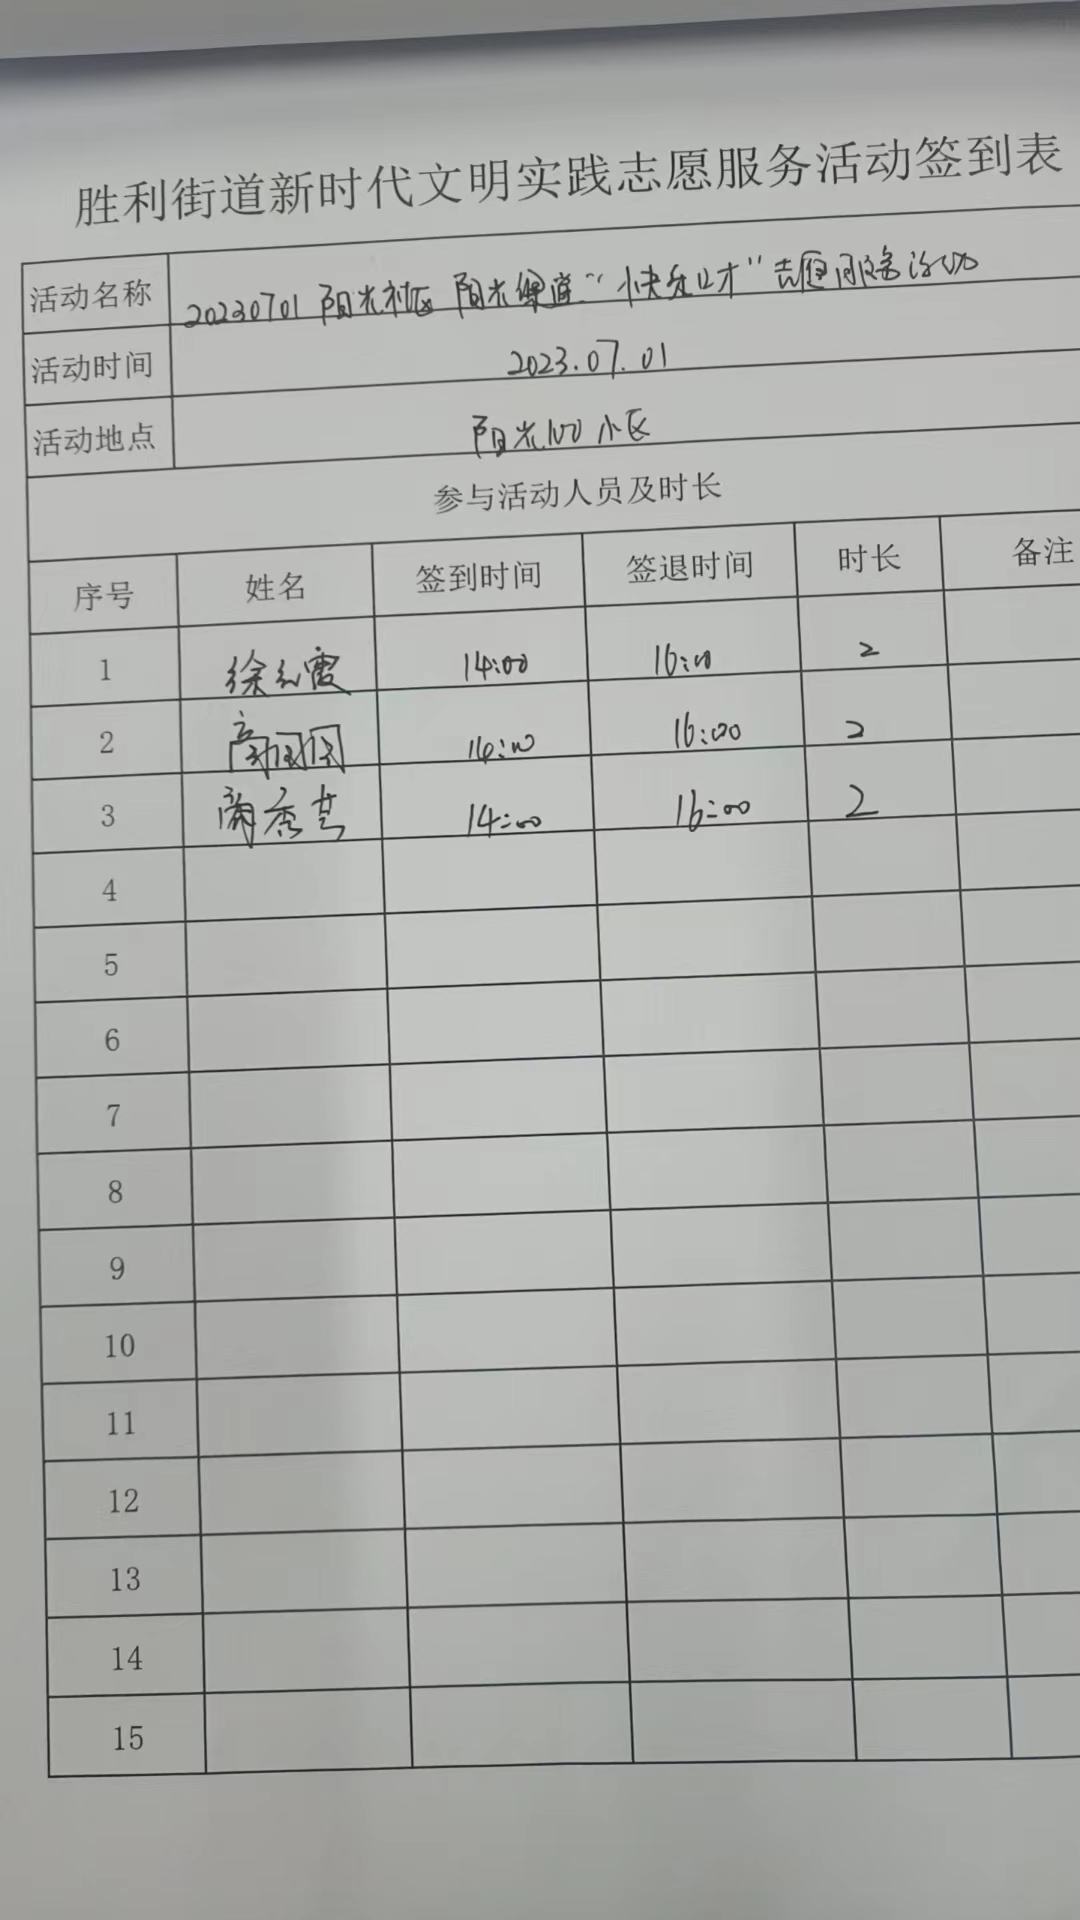 胜利街道新时代文明实践志愿服务活动签到表
活动名称 20230701 阳光社区 阳光课堂“小快乐口才”志愿服务活动
活动时间 2023.07.01
活动地点 阳光100小区
参与活动人员及时长
序号 姓名 签到时间 签退时间 时长 备注
1 徐红霞 14:00 16:00 2
2 高园园 14:00 16:00 2
3 秀芝 14:00 16:00 2
4
5
6
7
8
9
10
11
12
13
14
15